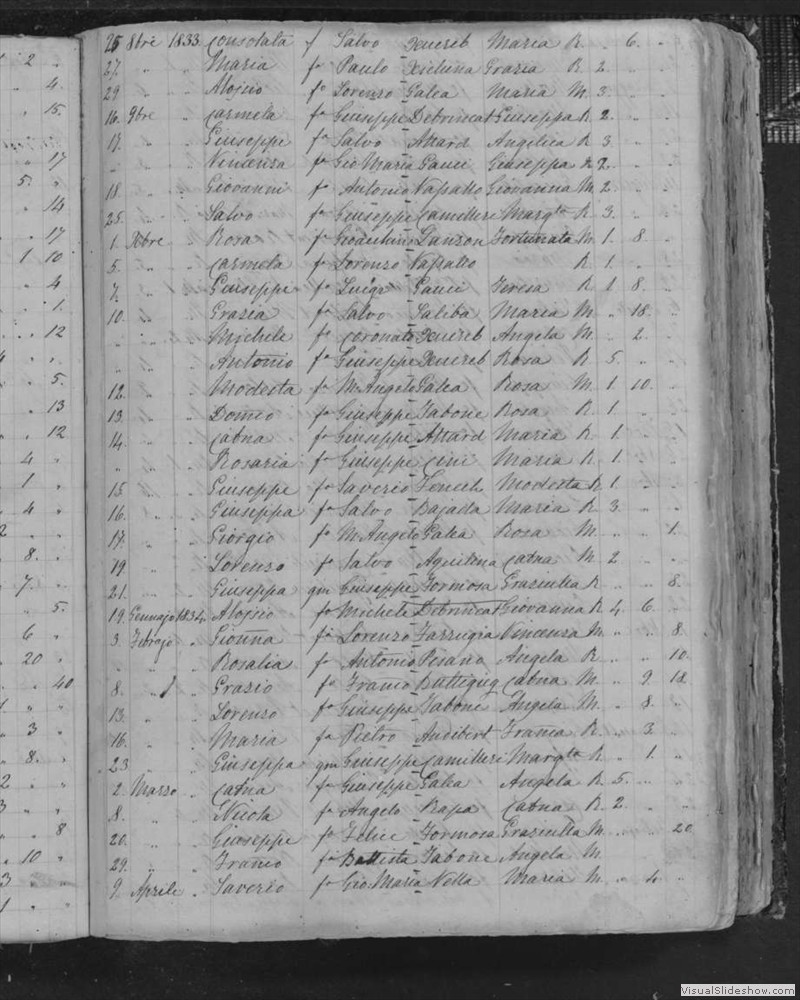 25 8bre 1833 Consolata f Salvo Xuereb Maria R. „ 6. „
27. „ „ Maria fa Paulo Xicluna Grazia R 2. „ „
29 „ „ Alojsio fo Lorenzo Galea Maria M. 3. „ „
16. 9bre „ Carmela fa Giuseppe Debrincat Giuseppa R 2. „ „
17. „ „ Giuseppe fo Salvo Attard Angelica R 3 „ „
„ „ „ Vincensa fa Gio Maria Gauci Giuseppa R 2. „ „
18. „ „ Giovanni fo Antonio Vassallo Giovanna M 2. „ „
25. „ „ Salvo fo Giuseppe Camilleri Margta R. 3. „ „
1. Xbre „ Rosa fa Gioachino Fortunata M. 1. 8. „
5. „ „ Carmela fa Lorenzo Vassallo R. 1. „ „
7. „ „ Giuseppe fo Luigi Gauci Teresa R 1 8. „
10. „ „ Grazia fa Salvo Saliba Maria M „ 18. „
„ „ „ Michele fo Coronato Xuereb Angela M „ 2. „
„ „ „ Antonio fo Giuseppe Xuereb Rosa R 5. „ „
12. „ „ Modesta fa M. Angelo Galea Rosa M 1. 10. „
13. „ „ Domco fo Giuseppe Tabone Rosa R. 1. „ „
14. „ „ Catna fa Giuseppe Attard Maria R. 1. „ „
„ „ „ Rosaria fa Giuseppe Cini Maria R. 1 „ „
15 „ „ Giuseppe fo Saverio Fenech Modesta R 1 „ „
16. „ „ Giuseppa fa Salvo Bajada Maria R. 3. „ „
17. „ „ Giorgio fo M. Angelo Galea Rosa M. „ „ 1.
19 „ „ Lorenzo fo Salvo Aquilina Catna M. 2 „ „
21. „ „ Giuseppa qm Giuseppe Formosa Graziulla R „ „ 8.
19. Gennajo 1834. Alojsio fo Michele Debrincat Giovanna R 4. 6. „
3. Febrajo „ Lorenzo Farrugia Vincensa M. „ „ 8
„ „ „ Rosalia fa Antonio Pisano Angela R. „ „ 10.
8. „ Grazio fo Franco Buttigieg Catna M. „ 9. 18
13. „ „ Lorenzo fo Giuseppe Tabone Angela M. „ 8. „
16. „ „ Maria fa Pietro Auditort Franca R. „ 3. „
23 „ „ Giuseppa qm Giuseppe Camilleri Margta R „ 1. „
2. Marso „ Catna fa Giuseppe Galea Angela R. 5. „ „
8. „ „ Nicola fo Angelo Rapa Catna R 2. „ „
20. „ „ Giuseppe fo Felice Formosa Graziulla M. „ „ 20
29. „ „ Franco fo Battista Tabone Angela M.
9. Aprile „ Saverio fo Gio. Maria Vella Maria M. „ 4. „
VisualSlideshow.com